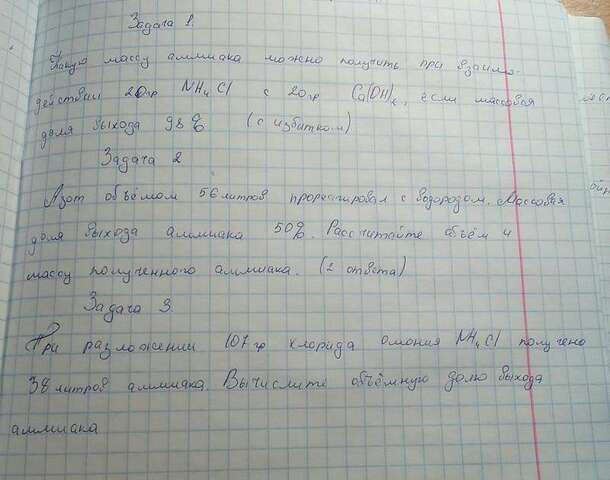 Задача 1.
Какую массу аммиака можно получить при взаимо-
действии 20гр NH4Cl с 20гр Ca(OH)2, если массовая
доля выхода 98% (с избытком)
Задача 2
Азот объёмом 56 литров прореагировал с водородом. Массовая
доля выхода аммиака 50%. Рассчитайте объём и
массу полученного аммиака. (2 ответа)
Задача 3
При разложении 107гр хлорида амония NH4Cl получено
38 литров аммиака. Вычислите объёмную долю выхода
аммиака